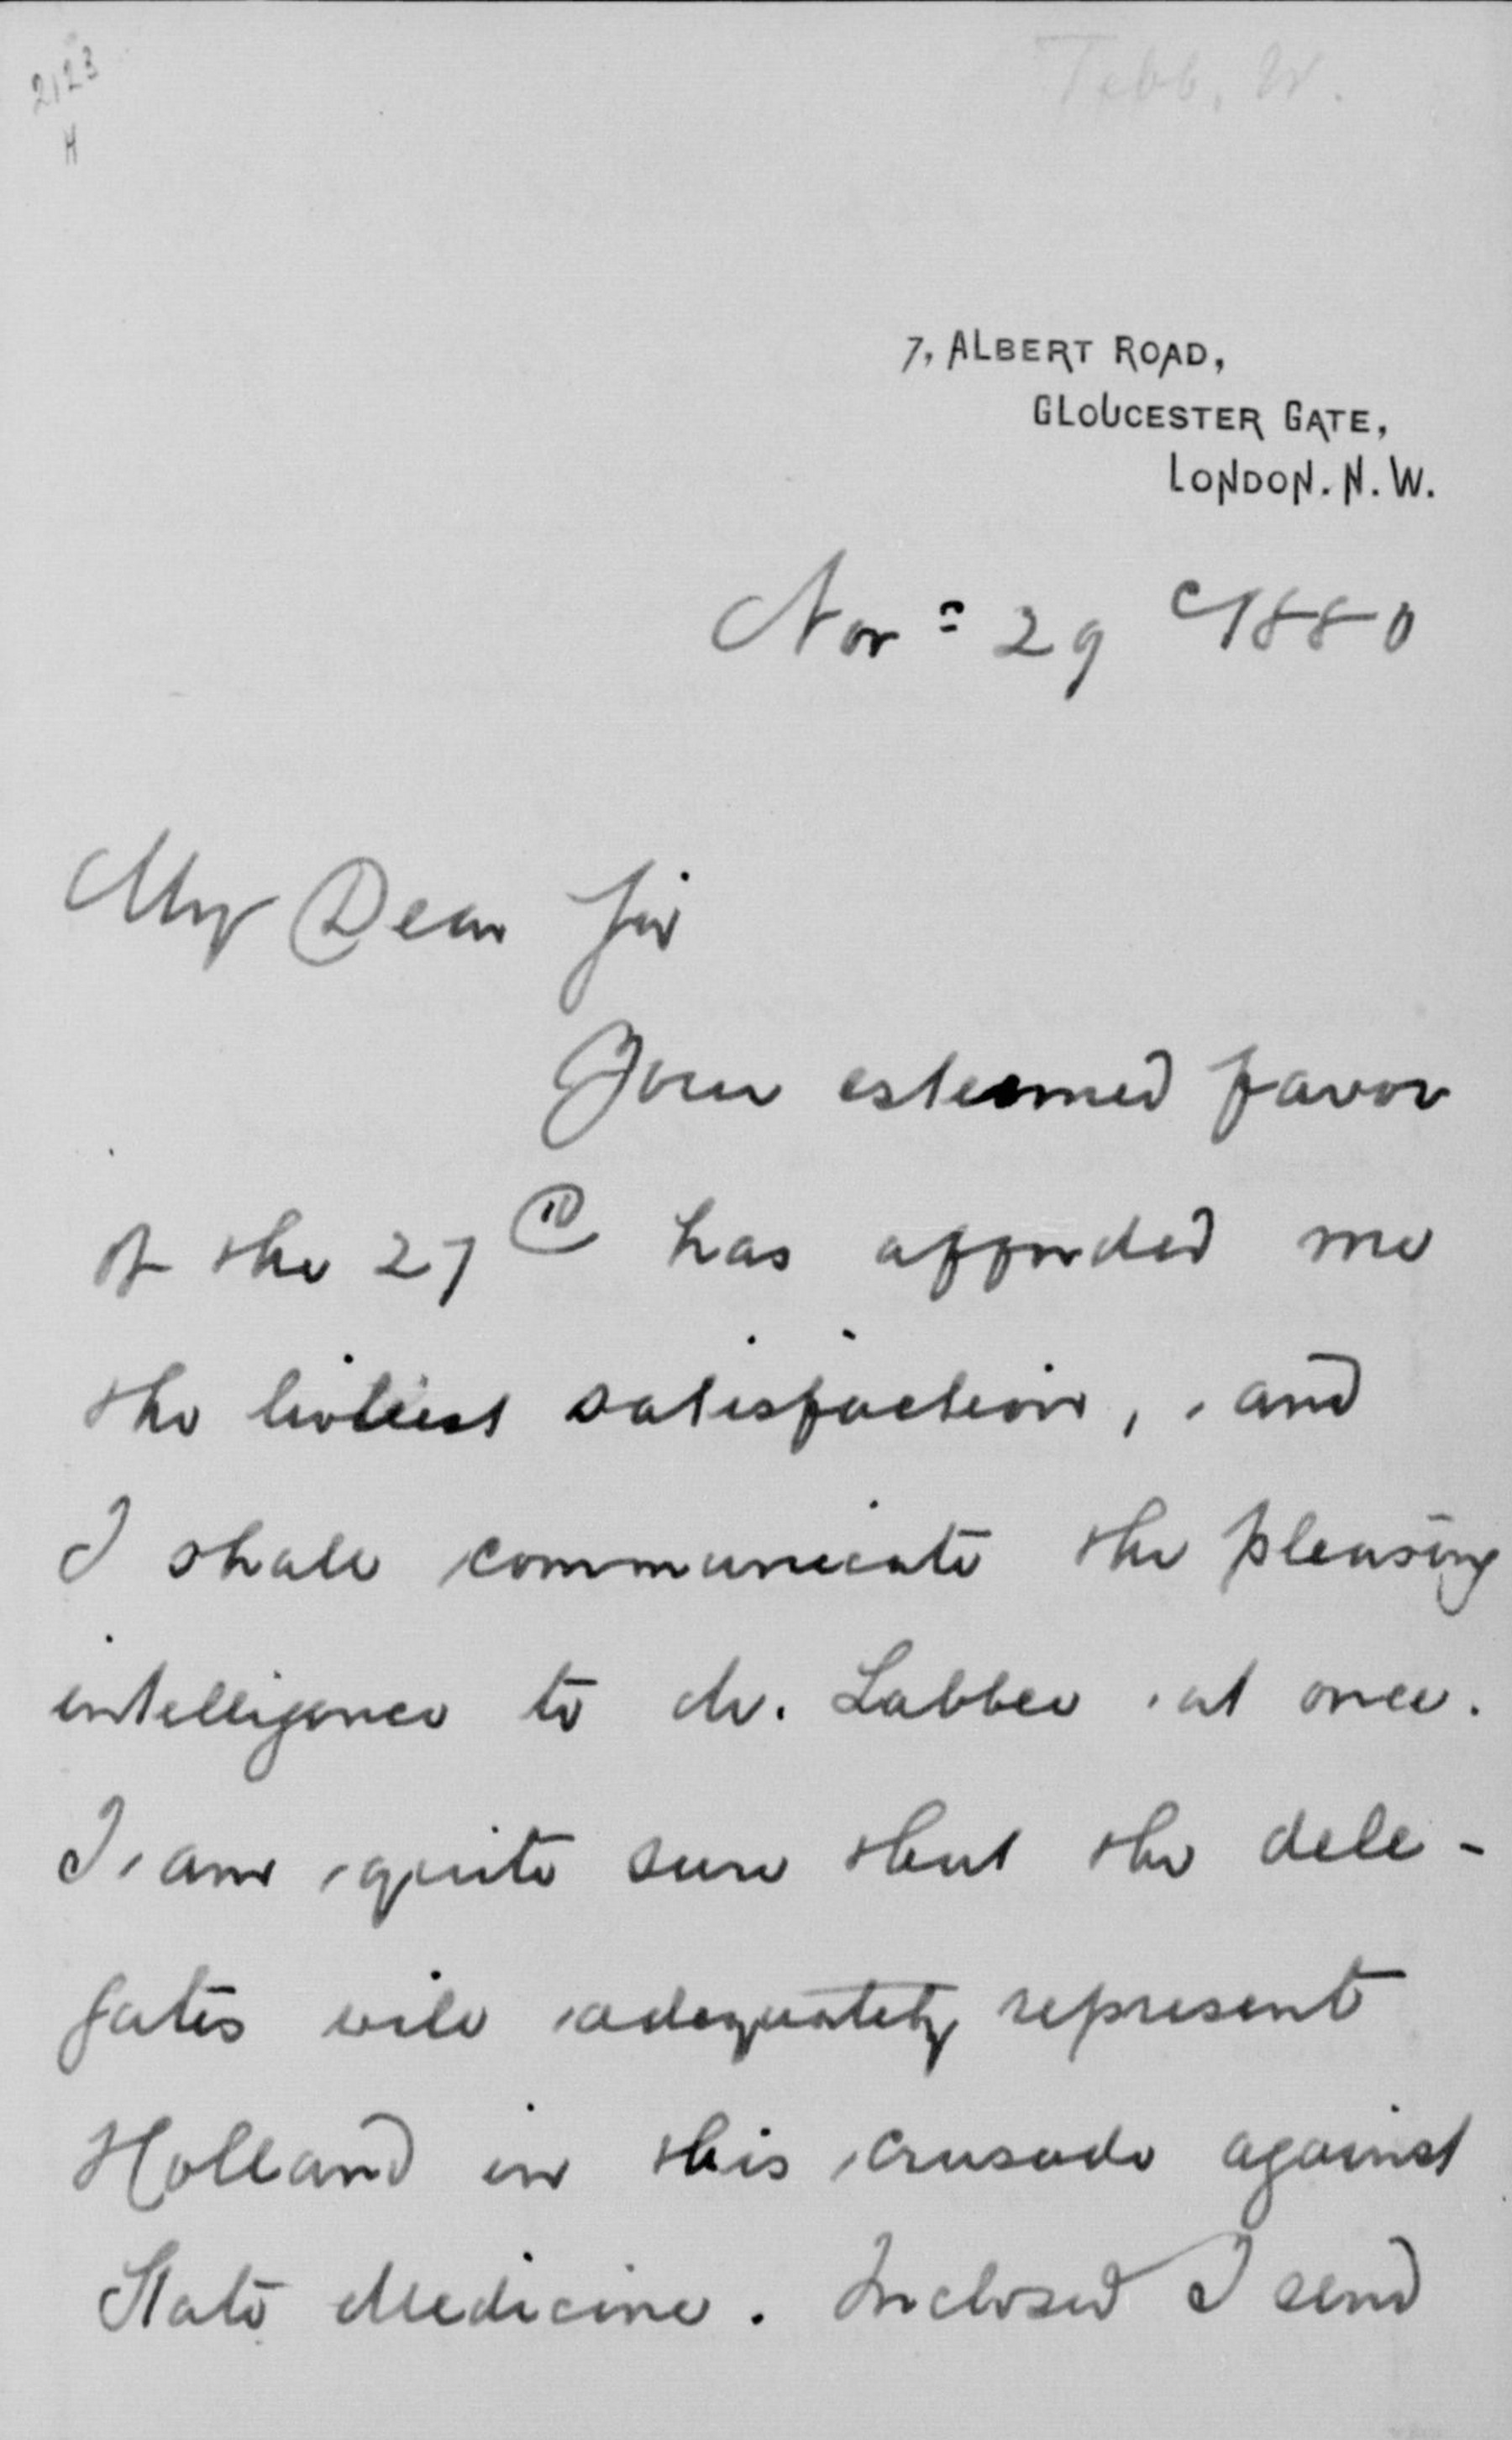 2123
H
Tebb, W.
7, ALBERT ROAD,
GLOUCESTER GATE,
LONDON. N. W.
Nov = 29 1880
My Dear Sir
Your esteemed favor
of the 27 has afforded me
the liveliest satisfaction, and
I shall communicate the pleasing
intelligence to dr. Labbee at once.
I am quite sure that the dele-
gates will adequately represent
Holland in this crusade against
State Medicine. Inclosed I send